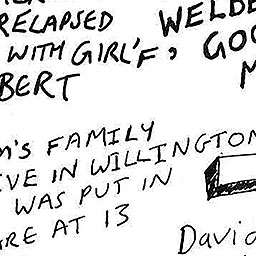 RELAPSED
WITH GIRL'F,
BERT
WELDE
GOO
M
M'S FAMILY
IVE IN WILLINGTON
WAS PUT IN
ARE AT 13
David